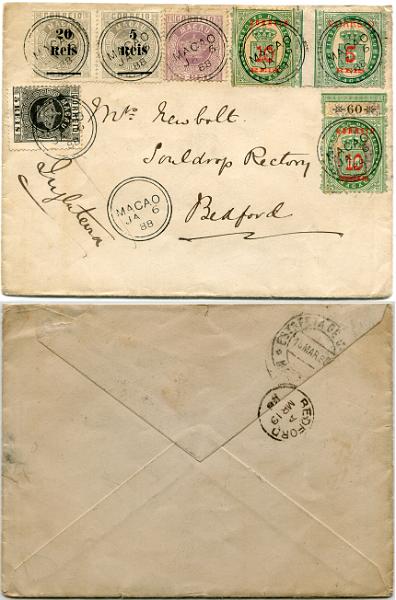 20
Reis
5
Reis
MACAO
JA 6
88
CORREIO
10
REIS
CORREIO
5
REIS
60
CORREIO
10
REIS
MACAO
Mrs Newbolt.
Souldrop Rectory
Bedford
Inglaterra
MACAO
JA 6
88
MAR
BEDFORD
A
MR 19
88